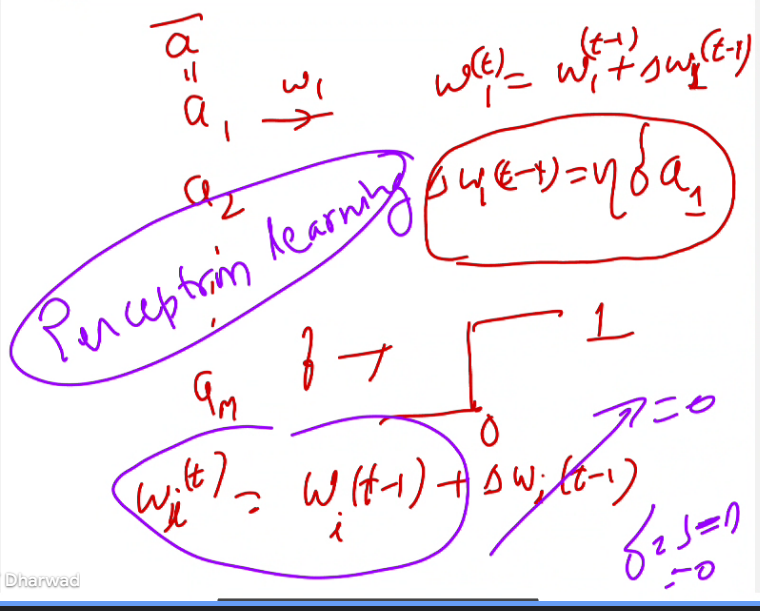 a
"
a₁ → w₁
w₁(t) = w₁(t-1) + Δw₁(t-1)
Δw₁(t-1) = η δ a₁
a₂
Perceptron learning
aₘ
f →
1
0
= 0
wᵢ(t) = wᵢ(t-1) + Δwᵢ(t-1)
= 0
Dharwad